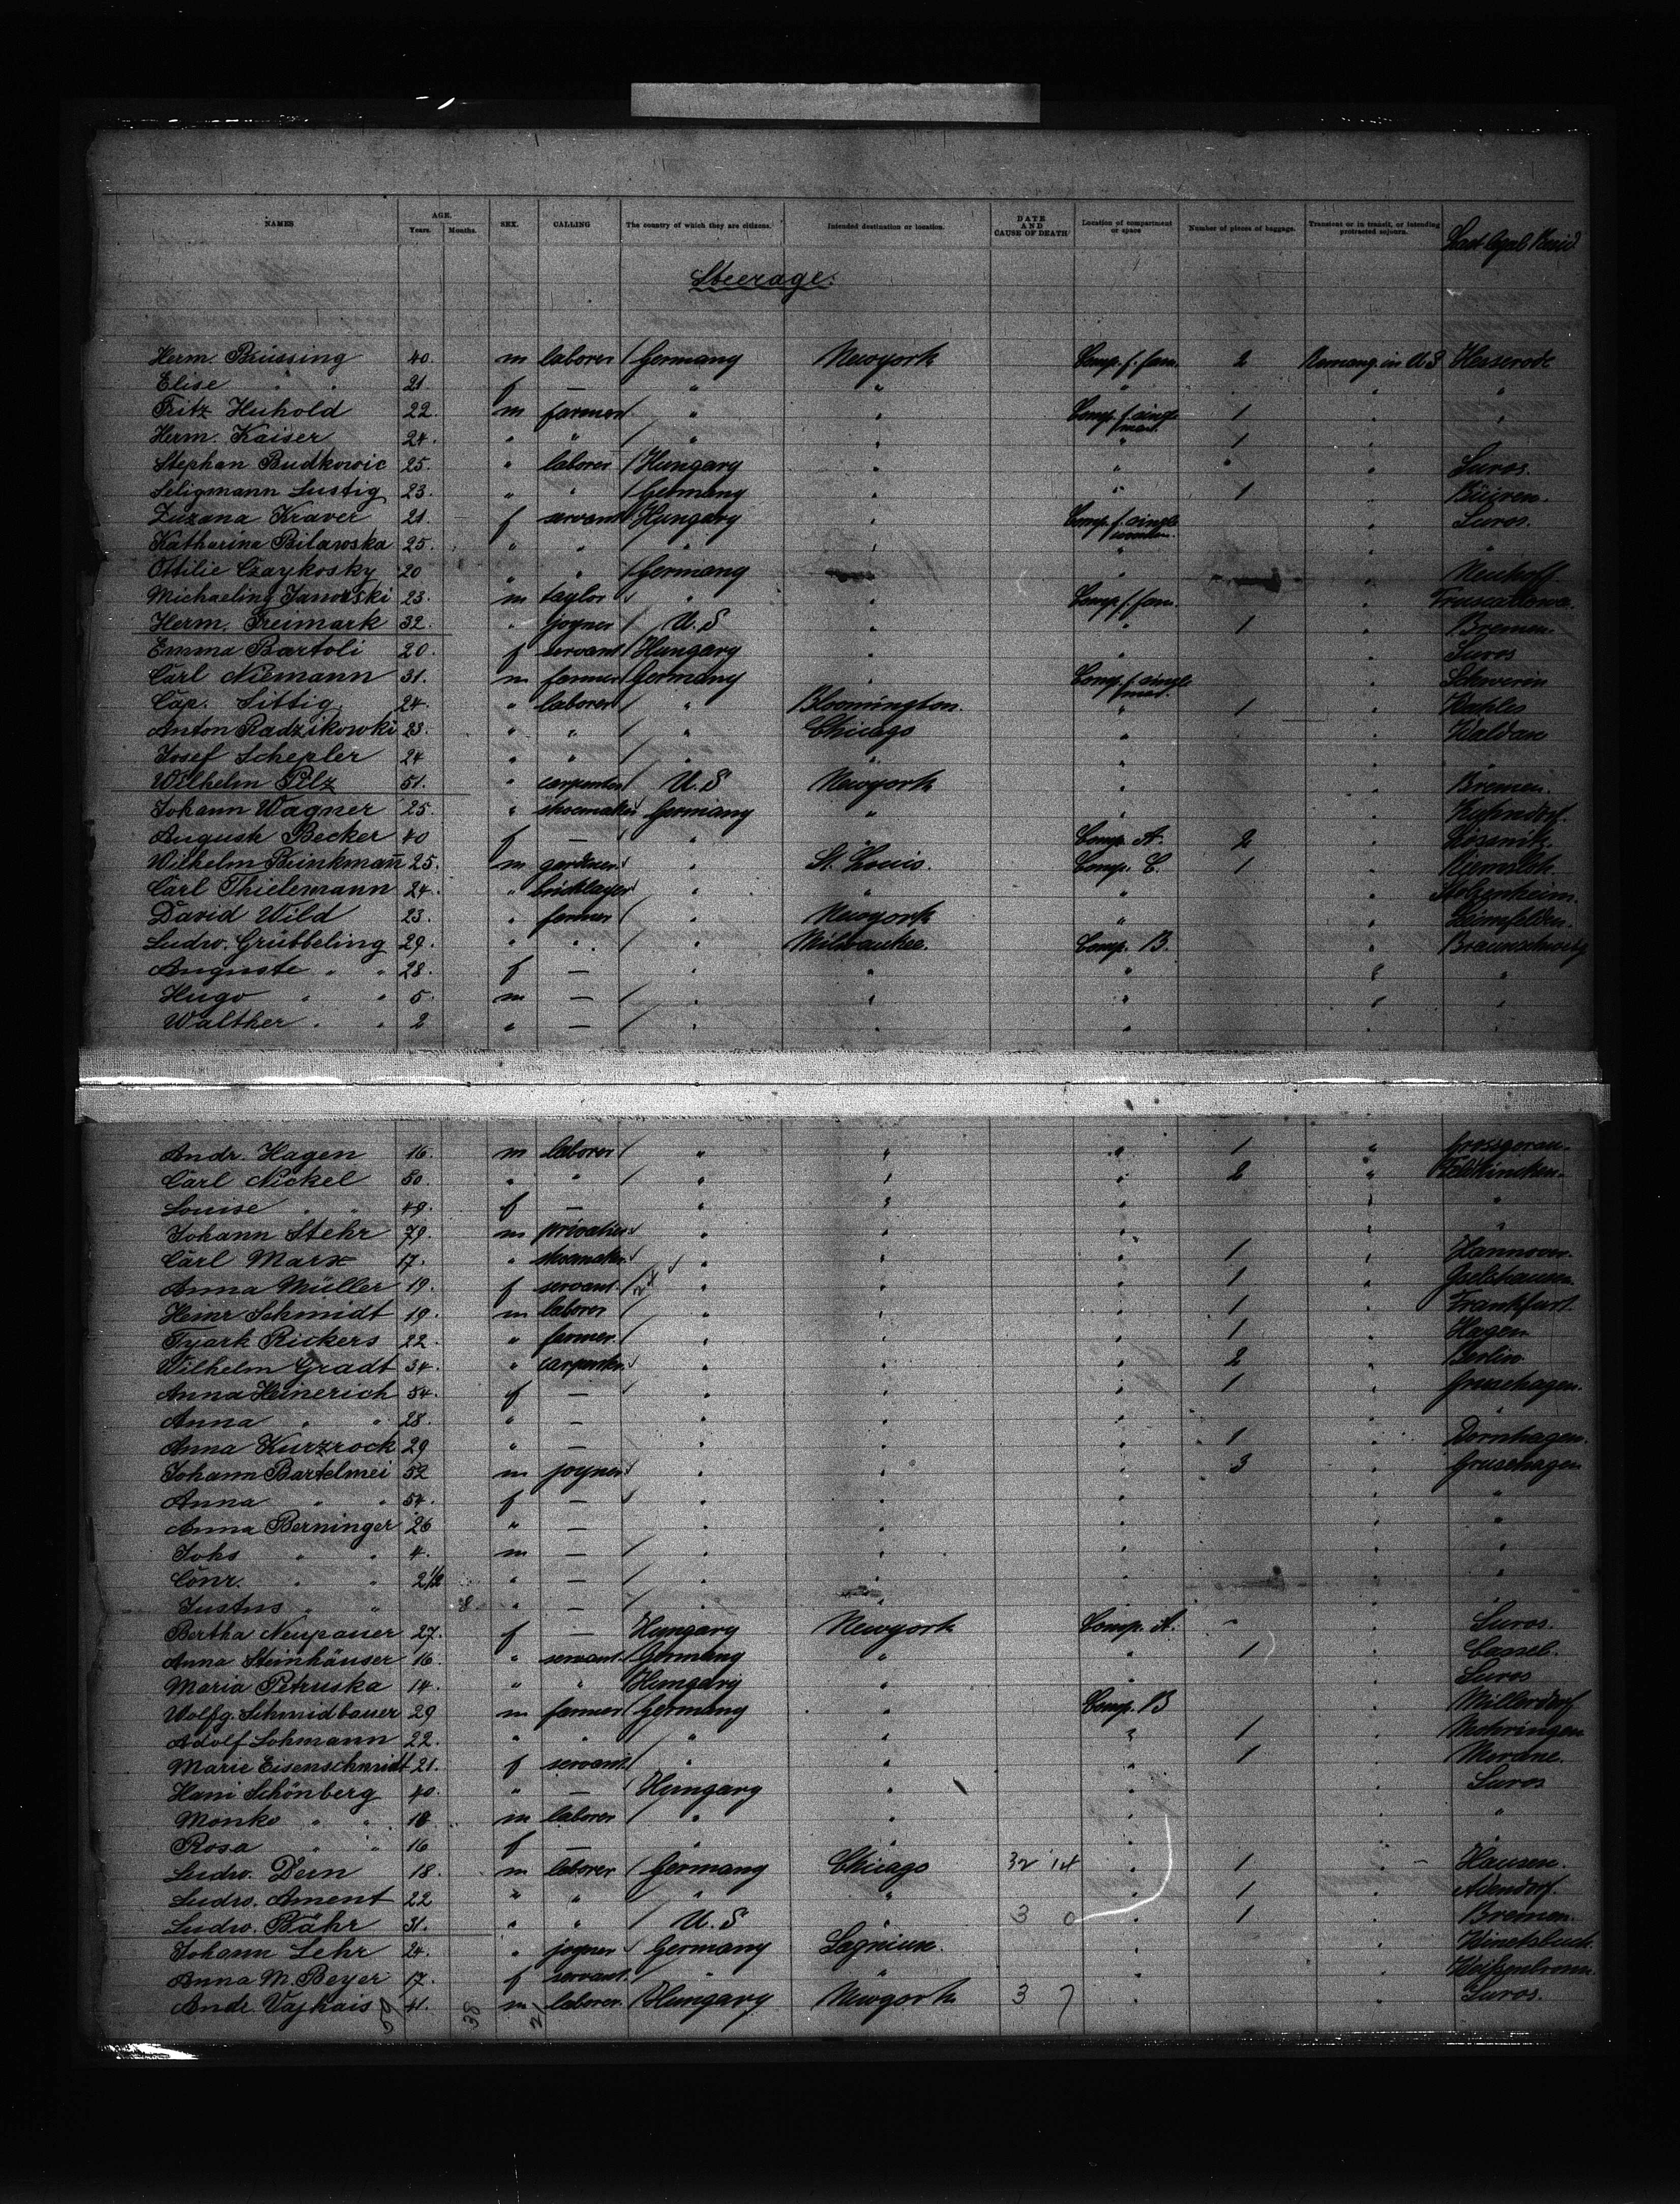 NAMES AGE. Years. Months. SEX. CALLING The country of which they are citizens. Intended destination or location. DATE AND CAUSE OF DEATH Location of compartment or space Number of pieces of baggage. Transient or in transit, or intending protracted sojourn.
Steerage.
Herm. Brüssing 40. m laborer / Germany Newyork Comp. f. fam. 2 in U S Hesserode
Elise " " 21 f — " " " " "
Fritz Huhold 22. m farmer " " Comp. f. single men. 1 " "
Herm. Kaiser 24. " " / " " " 1 "
Stephan Budkowic 25. " laborer / Hungary " " " " Suros.
Seligmann Lustig 23. " " / Germany " " 1 " Büüren.
Zuzana Kraver 21. f servant Hungary " Comp. f. single women. " Suros.
Katharina Bilawska 25. " " " " " " "
Ottilie Czaykosky 20 " " / Germany " " " Neuhoff
Michaeling Janowski 23. m taylor " " Comp. f. fam. "
Herm. Freimark 32. " joyner / U. S " " 1 " Bremen.
Emma Bartoli 20. f servant / Hungary " " " Suros
Carl Niemann 31. m farmer / Germany " Comp. f. single men. " Schwerin
Cap. Sittig 24. " laborer / " Bloomington. " 1 "
Anton Radzikowki 23. " " / " Chicago " " Waldau
Josef Schepler 24 " " / " " " " "
Wilhelm Pilz 51. " carpenter / U. S Newyork " " Bremen.
Johann Wagner 25. " shoemaker Germany " " "
Auguste Becker 40 f — " " Comp. A. 2 "
Wilhelm Brinkmann 25. m gardner " St. Louis. Comp. C. 1 "
Carl Thielemann 24. " bricklayer " " " "
David Wild 23. " farmer / " Newyork " "
Ludw. Grübbeling 29. " " / " Milwaukee. Comp. B. " Braunschweig
Auguste " " 28. f — " " " " "
Hugo " " 5. m — / " " " " "
Walther " " 2 " — / " " " " "
Andr. Hagen 16. m laborer / " " " 1 " Grossgerau.
Carl Nickel 50. " " / " " " 2 "
Louise " " 49. f — " " " " "
Johann Stehr 79. m privatier " " " " "
Carl Marx 17. " shoemaker " " " 1 " Hannover.
Anna Müller 19. f servant / " " " 1 "
Heinr Schmidt 19. m laborer / " " " 1 " Frankfurt.
Tjark Rickers 22. " farmer. / " " " 1 " Hagen
Wilhelm Gradt 34. " carpenter " " " 2 " Berlin
Anna Heinerich 54. f — " " " 1 " Grusehagen.
Anna " " 28. " — " " " " "
Anna Kurzrock 29 " — " " " 1 " Dörnhagen.
Johann Bartelmei 52 m joyner " " " 3 " Grusehagen
Anna " " 54. f — " " " " "
Anna Berninger 26 " — " " " " "
Johs " " 4. m — / " " " " "
Conr. " " 2 1/2 " — / " " " " "
Justus " " 8 " — / " " " " "
Bertha Neupauer 27. f — Hungary Newyork Comp. A. " " Suros.
Anna Steinhäuser 16. " servant Germany " " 1 " Cassel.
Maria Petruska 14. " " Hungary " " " Suros
Wolfg. Schmidbauer 29 m farmer / Germany " Comp. B " Millersdorf
Adolf Lohmann 22. " " " " " 1 " Mohringen
Marie Eisenschmidt 21. f servant / " " " 1 " Merane.
Hani Schönberg 40. " — Hungary " " " Suros
Monko " " 18 m laborer / " " " " "
Rosa " " 16 f — " " " " "
Ludw. Dern 18. m laborer / Germany Chicago 32 14 " 1 " Hausen.
Ludw. Ament 22 " " / " " " 1 " Adendorf.
Ludw. Bähr 31. " " / U. S " 3 0 " 1 " Bremen.
Johann Lehr 24. " joyner Germany " "
Anna M. Beyer 17. f servant / " " " " Weissenbronn.
Andr. Vajkais 41. m laborer Hungary Newyork 3 7 " " Suros.
38